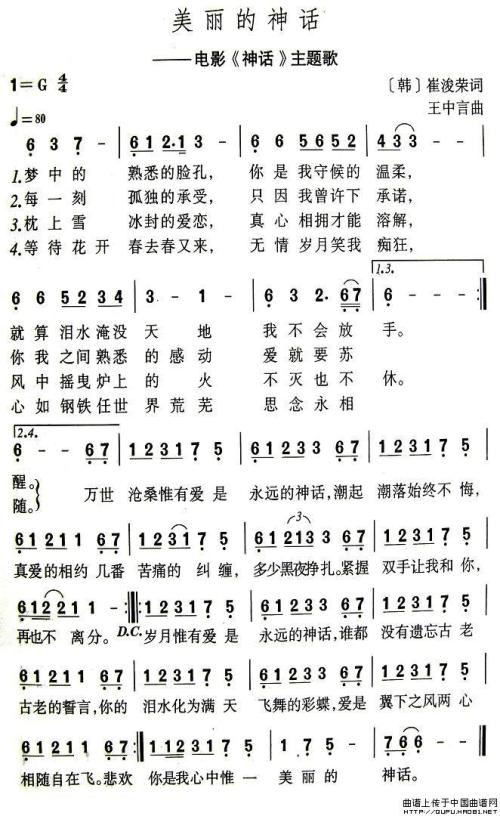 美丽的神话
——电影《神话》主题歌
1=G 4/4
〔韩〕崔浚荣词
♩=80
王中言曲
6 3 7 - | 6 1 2·1 3 | 6 6 5 6 5 2 | 4 3 3 - |
1.梦中的 熟悉的脸孔, 你是我守候的 温柔,
2.每一刻 孤独的承受, 只因我曾许下 承诺,
3.枕上雪 冰封的爱恋, 真心相拥才能 溶解,
4.等待花开 春去春又来, 无情岁月笑我 痴狂,
1.3.
6 6 5 2 3 4 | 3 - 1 - | 6 3 2· 6 7 | 6 - - :‖
就算泪水淹没 天地 我不会放 手。
你我之间熟悉 的感动 爱就要苏
风中摇曳炉上 的火 不灭也不 休。
心如钢铁任世 界荒芜 思念永相
2.4.
6 - - 6 7 | 1 2 3 1 7 5 | 1 2 3 1 7 5 | 1 2 3 1 7 5 |
醒。
随。
万世 沧桑惟有爱是 永远的神话,潮起 潮落始终不悔,
6 1 2 1 1 6 7 | 1 2 3 1 7 5 | 6 1 2 3 3 6 7 | 1 2 3 1 7 5 |
真爱的相约几番 苦痛的纠缠, 多少黑夜挣扎。紧握 双手让我和你,
6 1 2 2 2 1 1 - :‖ 1 2 3 1 7 5 | 1 2 3 1 7 5 | 1 2 3 1 7 5 |
再也不离分。 D.C. 岁月惟有爱是 永远的神话,谁都 没有遗忘古老
6 1 2 1 1 6 7 | 1 2 3 1 7 5 | 1 2 3 1 7 5 | 1 2 3 1 7 5 |
古老的誓言,你的 泪水化为满天 飞舞的彩蝶,爱是 翼下之风两心
6 1 2 1 1 6 7 :‖ 1 2 3 1 7 5 | 1 2 1 7 5 | 7 6 6 - ‖
相随自在飞。悲欢 你是我心中惟一 美丽的 神话。
曲谱上传于中国曲谱网
HTTP://QUPU.HAO81.NET